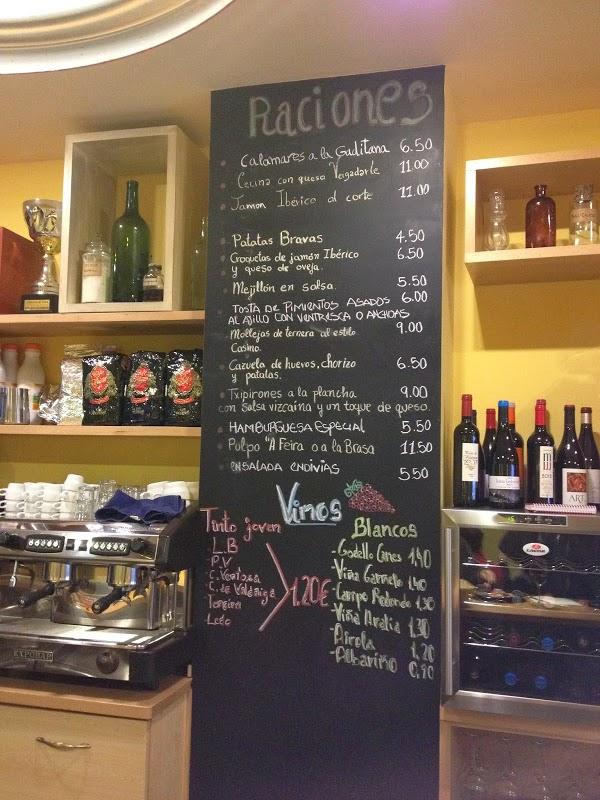 Raciones
Calamares a la Gaditana 6.50
Cecina con queso Vegadarte 11.00
Jamon Ibérico al corte 11.00
Patatas Bravas 4.50
Croquetas de jamón Ibérico 6.50
y queso de oveja.
Mejillón en salsa. 5.50
TOSTA DE PIMIENTOS ASADOS 6.00
AL AJILLO CON VENTRESCA O ANCHOAS
Mollejas de ternera al estilo 9.00
Casino.
Cazuela de huevos, chorizo 6.50
y patatas.
Txipirones a la plancha 9.00
con salsa vizcaina y un toque de queso.
HAMBURGUESA ESPECIAL 5.50
Pulpo "A Feira o a la Brasa 11.50
ENSALADA ENDIVIAS 5.50
Vinos
Tinto joven
Blancos
. L.B
. P.V
. C. Ventosa
. C. de Valdñiga
Toreira
. Ledo
1.20€
-Godello Canes 1,40
-Viña Garmelo 1,40
-Campo Redondo 1,30
-Viña Aralia 1,30
-Airola 1,20
-Albariño 0,90
EXPOBAR
ART